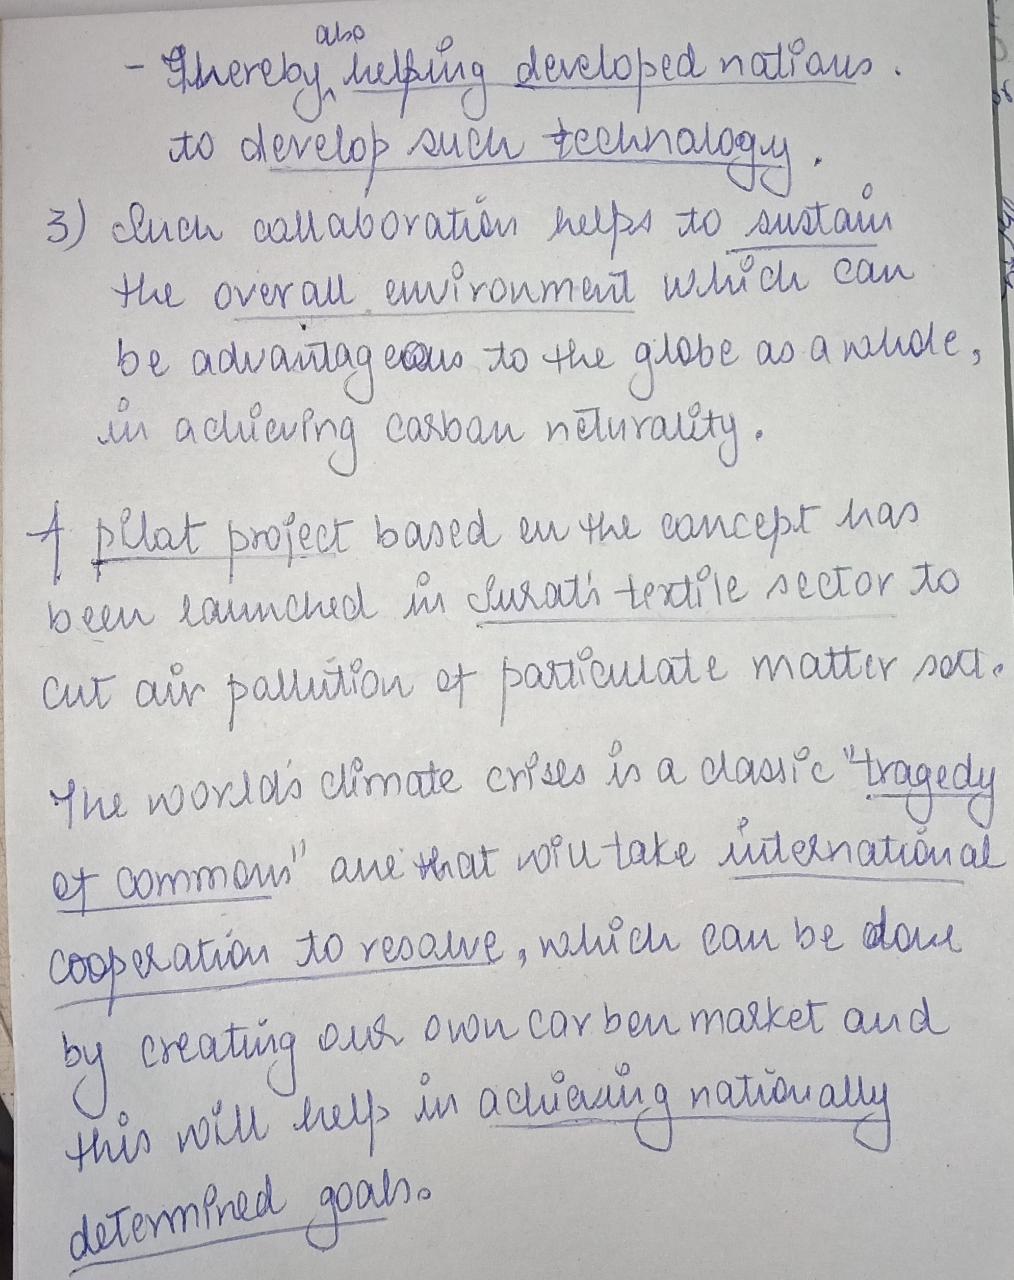 also
- Thereby ^ helping developed nations.
to develop such technology.
3) Such collaboration helps to sustain
the overall environment which can
be advantageous to the globe as a whole,
in achieving carbon neturality.
A pilot project based on the concept has
been launched in Surat's textile sector to
cut air pollution of particulate matter
The world's climate crises is a classic "tragedy
of commons" one that will take international
cooperation to resolve, which can be done
by creating our own carbon market and
this will help in achieving nationally
determined goals.